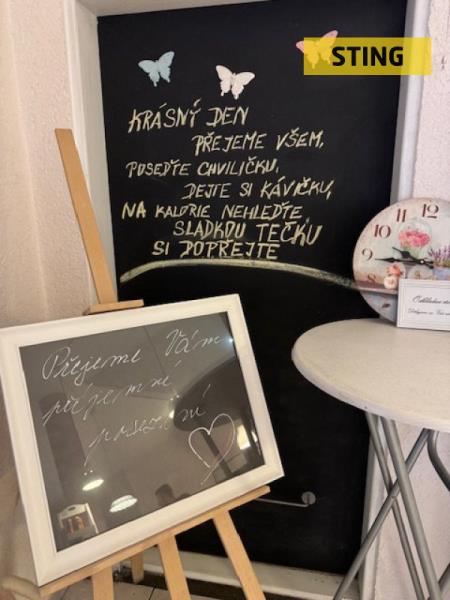 STING
KRÁSNÝ DEN
PŘEJEME VŠEM,
POSEĎTE CHVILIČKU,
DEJTE SI KÁVIČKU,
NA KALORIE NEHLEĎTE,
SLADKOU TEČKU
SI DOPŘEJTE
Přejeme Vám
příjemné
posezení
10 11 12
9
8